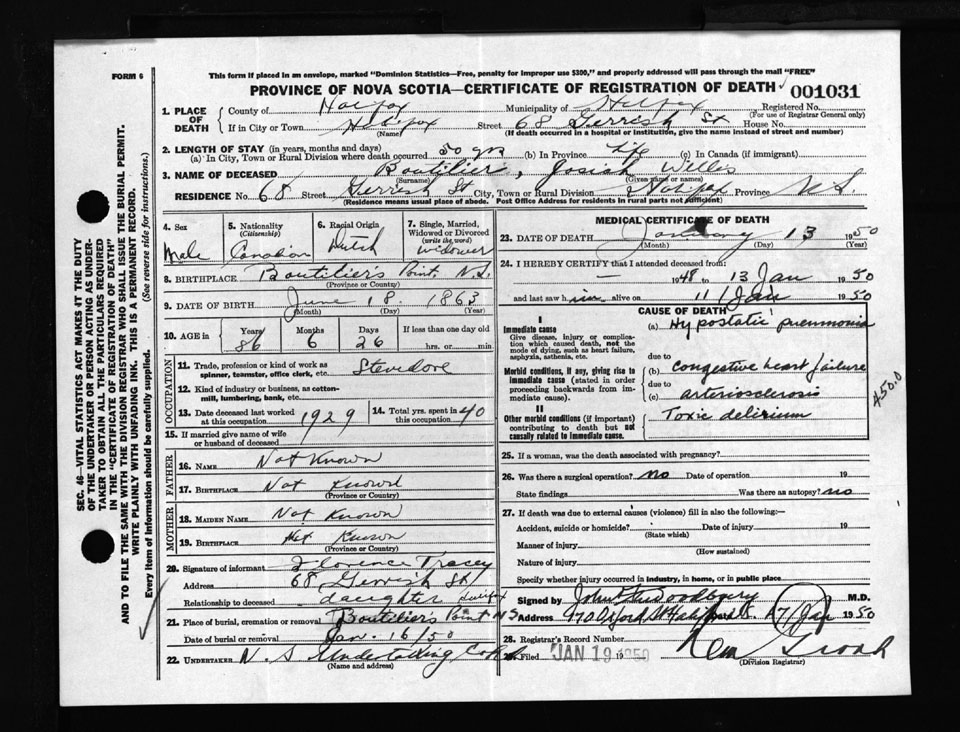 FORM 6
This form if placed in an envelope, marked "Dominion Statistics—Free, penalty for improper use $300," and properly addressed will pass through the mail "FREE"
PROVINCE OF NOVA SCOTIA—CERTIFICATE OF REGISTRATION OF DEATH 001031
1. PLACE OF DEATH
County of Halifax Municipality of Halifax Registered No.
(For use of Registrar General only)
If in City or Town Halifax Street 68 Gerrish St House No.
(Name) (If death occurred in a hospital or institution, give the name instead of street and number)
2. LENGTH OF STAY (in years, months and days)
(a) In City, Town or Rural Division where death occurred 50 yrs (b) In Province Life (c) In Canada (if immigrant)
3. NAME OF DECEASED Boutilier, Josiah Willis
(Surname) (Given name or names)
RESIDENCE No. 68 Street Gerrish St City, Town or Rural Division Halifax Province N.S.
(Residence means usual place of abode. Post Office Address for residents in rural parts not sufficient)
4. Sex Male
5. Nationality (Citizenship) Canadian
6. Racial Origin Dutch
7. Single, Married, Widowed or Divorced (write the word) Widower
8. BIRTHPLACE Boutilier's Point N.S.
(Province or Country)
9. DATE OF BIRTH June 18 1863
(Month) (Day) (Year)
10. AGE in Years 86 Months 6 Days 26 If less than one day old hrs. or min
OCCUPATION
11. Trade, profession or kind of work as spinner, teamster, office clerk, etc. Stevedore
12. Kind of industry or business, as cotton-mill, lumbering, bank, etc.
13. Date deceased last worked at this occupation 1929
14. Total yrs. spent in this occupation 40
15. If married give name of wife or husband of deceased
FATHER
16. NAME Not Known
17. BIRTHPLACE Not Known
(Province or Country)
MOTHER
18. MAIDEN NAME Not Known
19. BIRTHPLACE Not Known
(Province or Country)
20. Signature of informant Florence Tracey
Address 68 Gerrish St Halifax
Relationship to deceased daughter
21. Place of burial, cremation or removal Boutiliers Point N S
Date of burial or removal Jan. 16/50
22. UNDERTAKER N.S. Undertaking Co
(Name and address)
MEDICAL CERTIFICATE OF DEATH
23. DATE OF DEATH January 13 1950
(Month) (Day) (Year)
24. I HEREBY CERTIFY that I attended deceased from:
1948 to 13 Jan 1950
and last saw him alive on 11 Jan 1950
CAUSE OF DEATH
I
Immediate cause
Give disease, injury or complication which caused death, not the mode of dying, such as heart failure, asphyxia, asthenia, etc.
(a) Hypostatic pneumonia
due to
Morbid conditions, if any, giving rise to immediate cause (stated in order proceeding backwards from immediate cause).
(b) congestive heart failure
due to
(c) arteriosclerosis
II
Other morbid conditions (if important) contributing to death but not causally related to immediate cause.
Toxic delirium
450.0
25. If a woman, was the death associated with pregnancy?
26. Was there a surgical operation? no Date of operation 19
State findings Was there as autopsy? no
27. If death was due to external causes (violence) fill in also the following:—
Accident, suicide or homicide? Date of injury 19
(State which)
Manner of injury
(How sustained)
Nature of injury
Specify whether injury occurred in industry, in home, or in public place
Signed by John Woodbury M.D.
Address 170 Oxford St Halifax Date 17 Jan 1950
28. Registrar's Record Number
29. Filed JAN 19 1950 19
(Division Registrar)
SEC. 46—VITAL STATISTICS ACT MAKES IT THE DUTY
OF THE UNDERTAKER OR PERSON ACTING AS UNDER-
TAKER TO OBTAIN ALL THE PARTICULARS REQUIRED
IN THE "CERTIFICATE OF REGISTRATION OF DEATH"
AND TO FILE THE SAME WITH THE DIVISION REGISTRAR WHO SHALL ISSUE THE BURIAL PERMIT.
WRITE PLAINLY WITH UNFADING INK. THIS IS A PERMANENT RECORD.
Every item of information should be carefully supplied. (See reverse side for instructions.)